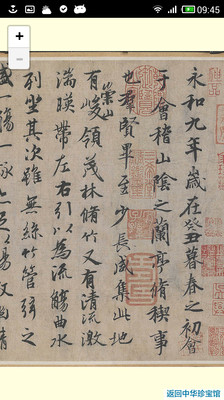 09:45
+
−
永和九年歲在癸丑暮春之初會
于會稽山陰之蘭亭脩禊事
也羣賢畢至少長咸集此地
有崇山峻領茂林脩竹又有清流激
湍暎帶左右引以為流觴曲水
列坐其次雖無絲竹管弦之
返回中华珍宝馆